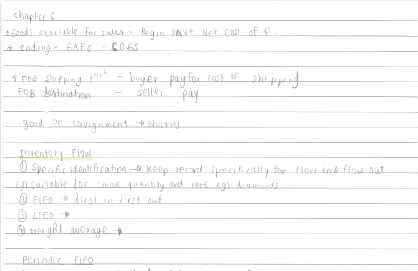 Chapter 6
+ Goods available for sales - Begin Net Cost of P.
+ ending - GAFS - COGS
+ FOB shipping point - buyer pay for cost of shipping
FOB destination - seller pay
good on consignment →
Inventory Flow
① Specific identification → Keep record specifically for flow in & flow out
eg) suitable for small quantity and rare eg) diamonds
② FIFO → first in first out
③ LIFO →
④ weight average →
Periodic FIFO